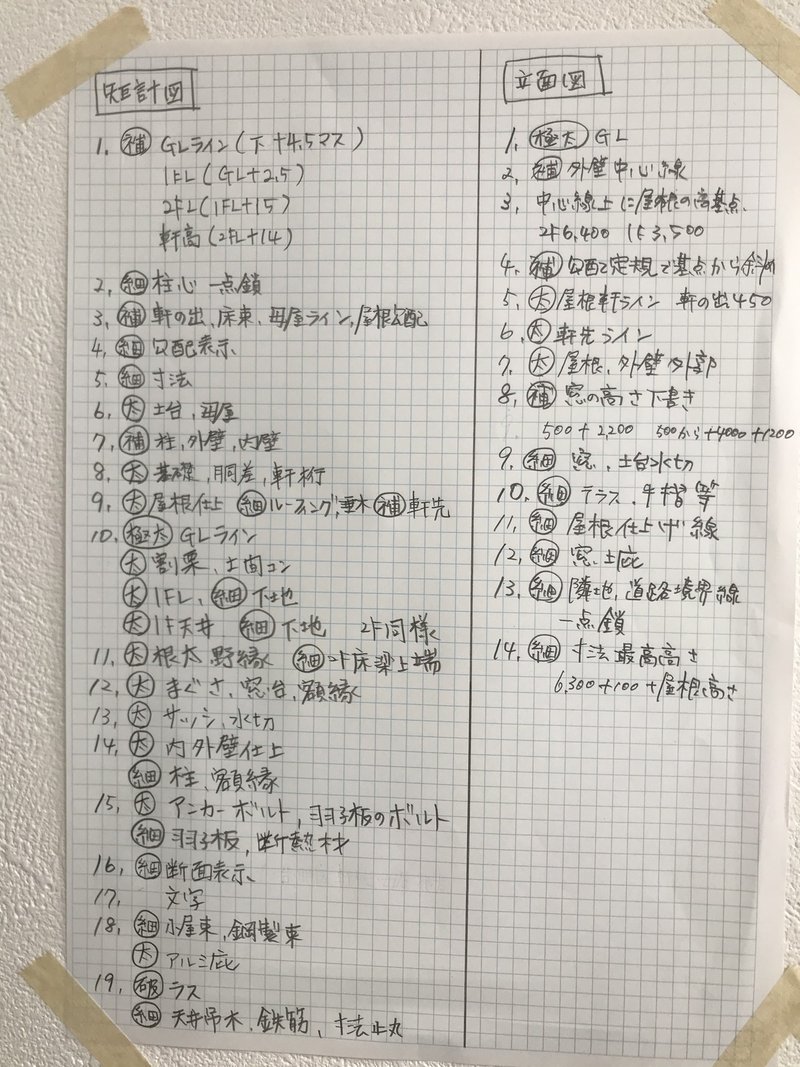 矩計図
1. 補 GLライン(下+4.5マス)
1FL(GL+2.5)
2FL(1FL+15)
軒高(2FL+14)
2. 細 柱心 一点鎖
3. 補 軒の出、床束、母屋ライン、屋根勾配
4. 細 勾配表示
5. 細 寸法
6. 太 土台、母屋
7. 補 柱、外壁、内壁
8. 太 基礎、胴差、軒桁
9. 太 屋根仕上 細 ルーフィング、垂木 補 軒先
10. 極太 GLライン
太 割栗、土間コン
太 1FL、細 下地
太 1F天井 細 下地 2F同様
11. 太 根太、野縁 細 2F床梁上端
12. 太 まぐさ、窓台、額縁
13. 太 サッシ、水切
14. 太 内外壁仕上
細 柱、額縁
15. 太 アンカーボルト、羽子板のボルト
細 羽子板、断熱材
16. 細 断面表示
17. 文字
18. 細 小屋束、鋼製束
太 アルミ庇
19. 破 ラス
細 天井吊木、鉄筋、寸法止丸
立面図
1. 極太 GL
2. 補 外壁中心線
3. 中心線上に屋根の高基点
2F6,400 1F3,500
4. 補 勾配定規で基点から斜め
5. 太 屋根軒ライン 軒の出450
6. 太 軒先ライン
7. 太 屋根、外壁外部
8. 補 窓の高さ下書き
500+2,200 500から+4000+1200
9. 細 窓、土台水切
10. 細 テラス、手摺等
11. 細 屋根仕上げ線
12. 細 窓、土庇
13. 細 隣地、道路境界線
一点鎖
14. 細 寸法最高高さ
6,300+100+屋根高さ